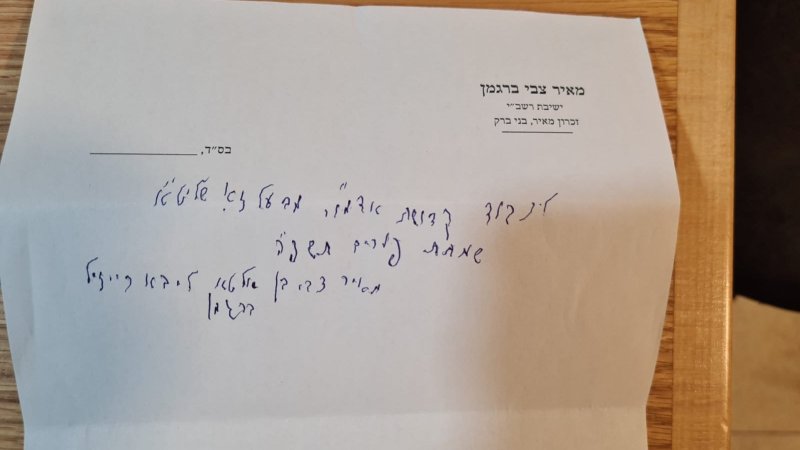 מאיר צבי ברגמן
ישיבת רשב״י
זכרון מאיר, בני ברק
בס״ד,
לכבוד קדושת אדמו"ר מבעלזא שליט"א
שמחת פורים
מאיר צבי בן אלטא ליבא רייזיל
ברגמן